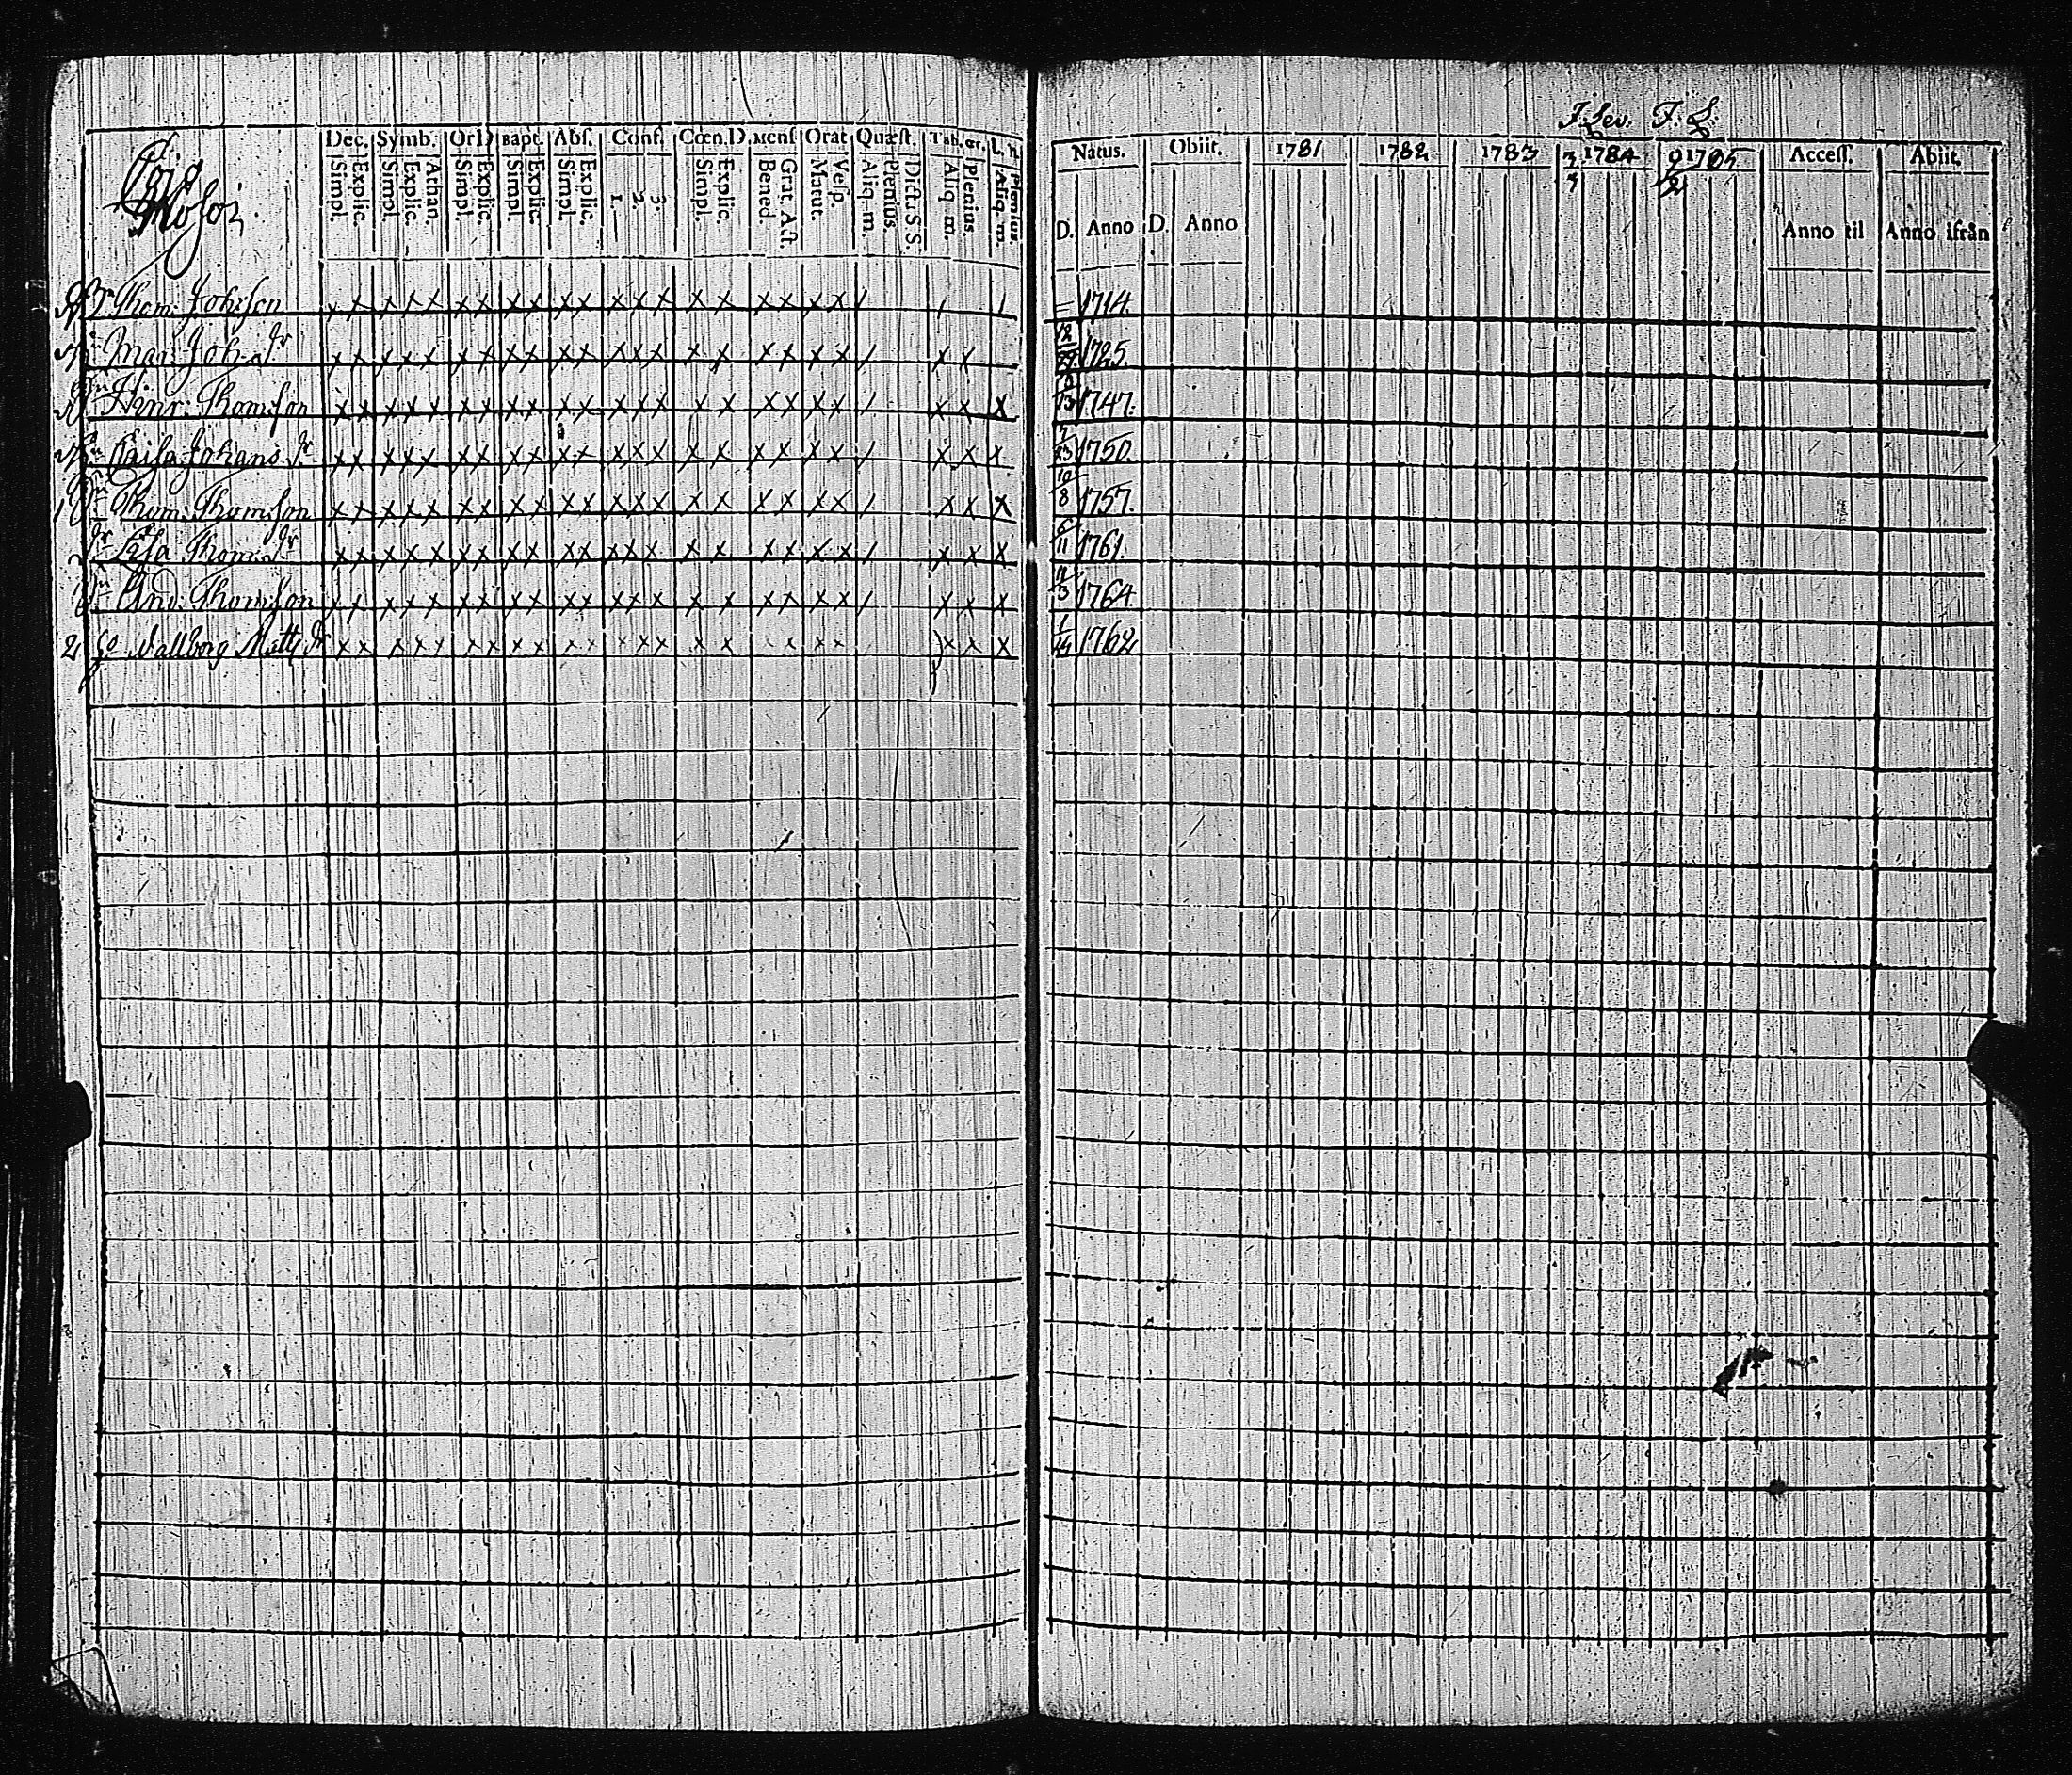 Dec. Symb. Or D Bapt. Abs. Conf. Cœn. D. Mens Orat Quæst. Tab. œc.
Simpl. Explic. Simpl Explic. Athan. Simpl. Explic. Simpl Explic. Simpl Explic. 1. 2. 3. Simpl. Explic. Bened. Grat. Act. Matut. Vesp. Aliq. m. Plenius. Dict. S S Aliq m. Plenius Aliq. m. Plenius.
Thom. Johsson
Mar. Joh. dr
Henr. Thomsson
Caisa Johans dr
Thom. Thomsson
Lisa Thoms dr
And. Thomsson
2 Wallborg Matts dr
Natus. Obiit. 1781 1782 1783 1784 1785 Access. Abiit.
D. Anno D. Anno Anno til Anno ifrån
1714.
12/29 1725.
1747.
7/23 1750.
10/8 1757.
6/11 1761.
1764.
1762